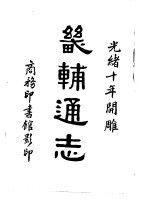 光緒十年開雕
畿輔通志
商務印書館影印